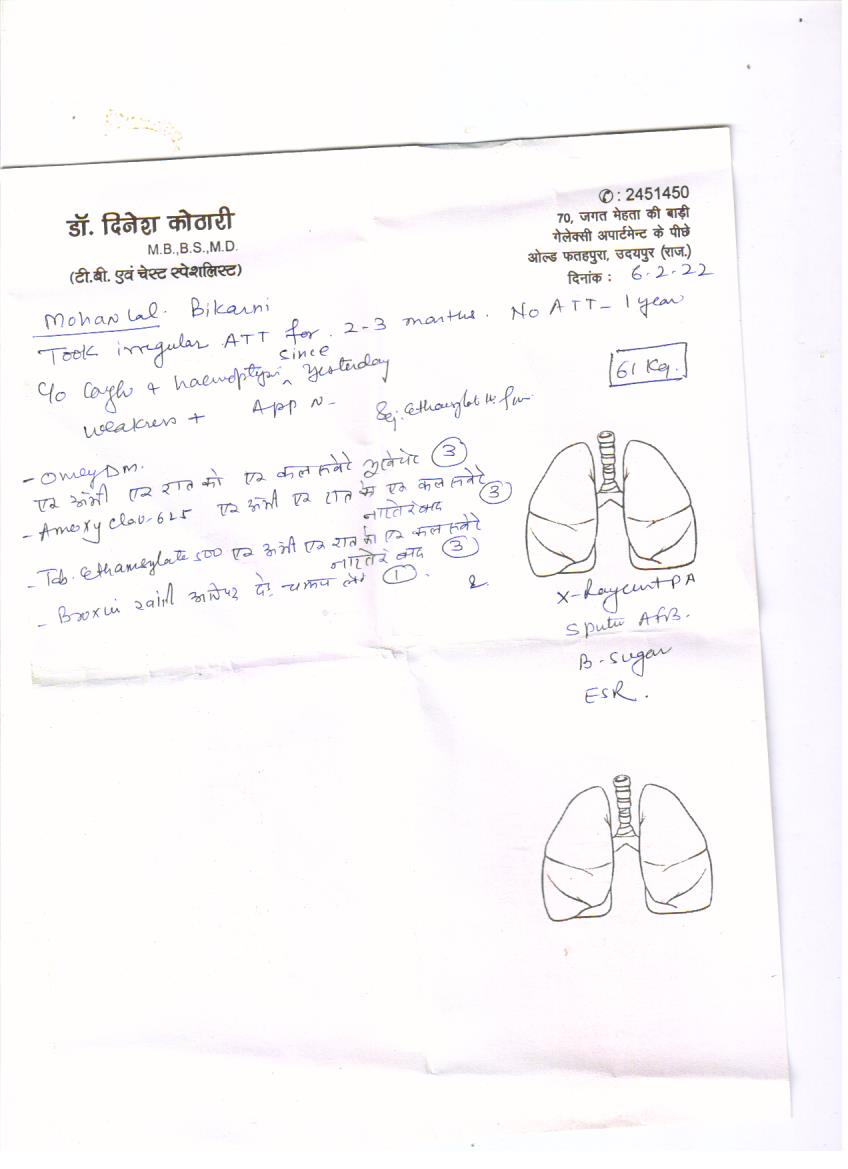 डॉ. दिनेश कोठारी
M.B.,B.S.,M.D.
(टी.बी. एवं चेस्ट स्पेशलिस्ट)
✆: 2451450
70, जगत मेहता की बाड़ी
गेलेक्सी अपार्टमेन्ट के पीछे
ओल्ड फतहपुरा, उदयपुर (राज.)
दिनांक : 6.2.22
Mohan Lal. Bikarni
Took irregular ATT for 2-3 months. No ATT - 1 year
c/o Cough + haemoptysis since yesterday
61 Kg.
weakness + App N-
- Omey DM.
एक अभी एक रात को एक कल सवेरे (3)
- Amoxyclav-625 एक अभी एक रात को एक कल सवेरे (3)
नाश्ते के बाद
- Tab. Ethamsylate 500 एक अभी एक रात को एक कल सवेरे
नाश्ते के बाद (3)
- Broxin दो चम्मच (1)
X-Ray chest PA
Sputum AFB.
B-sugar
ESR.